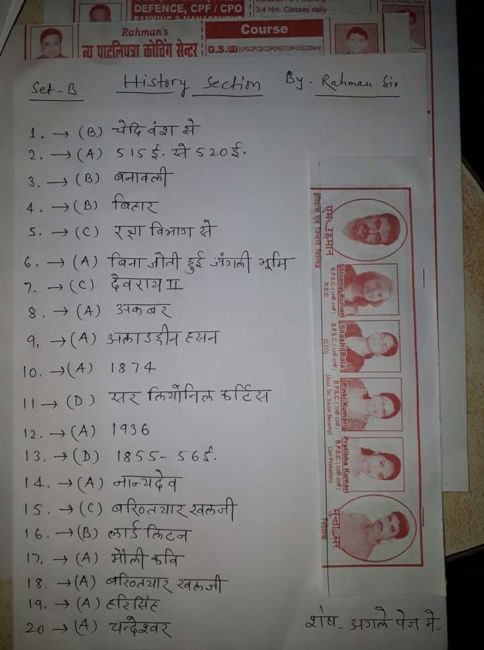 DEFENCE, CPF / CPO
3-4 Hrs. Classes daily
Rahman's
न्य पाटलिपुत्रा कोचिंग सेन्टर
Course
G.S.
Set-B History Section By - Rahman Sir
1. → (B) चेदि वंश से
2. → (A) 515 ई. से 520 ई.
3. → (B) बनावली
4. → (B) बिहार
5. → (C) रक्षा विभाग से
6. → (A) बिना जोती हुई जंगली भूमि
7. → (C) देवराय II
8. → (A) अकबर
9. → (A) अलाउद्दीन हसन
10. → (A) 1874
11 → (D) सर लियोनिल कर्टिस
12. → (A) 1936
13. → (D) 1855-56 ई.
14. → (A) नान्यदेव
15. → (C) बख्तियार खलजी
16. → (B) लार्ड लिटन
17. → (A) मौली कवि
18. → (A) बख्तियार खलजी
19. → (A) हरिसिंह
20 → (A) चन्देश्वर
शेष - अगले पेज में..
एम० रहमान
Shivani Kumari
B.P.S.C.
R.D.O.
Shashi Bala
B.P.S.C.
(CTO)
Pinki Kumari
B.P.S.C.
Pratibha Kumari
B.P.S.C.
मुन्ना सर